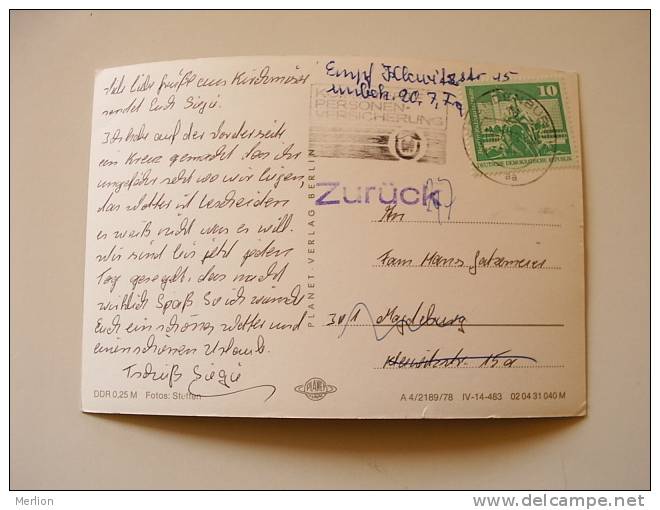 Viele liebe Grüße aus Kirchmöser
sendet Euch Siegie.
Ich habe auf der Vorderseite
ein Kreuz gemacht das ihr
ungefähr seht wo wir liegen,
das Wetter ist bescheiden
es weiß nicht was es will.
Wir sind bis jetzt jeden
Tag gesegelt, das macht
wirklich Spaß. So ich wünsche
Euch ein schönes Wetter und
einen schönen Urlaub.
Tschüß Siegie
DDR 0,25 M Fotos: Steffen
PLANET-VERLAG BERLIN
PLANET
Empf. str 15
unbek. 20.7.79
PERSONEN-
VERSICHERUNG
10
DEUTSCHE DEMOKRATISCHE REPUBLIK
aa
Zurück
An
Fam Hans
301 Magdeburg
15a
A 4/2189/78 IV-14-483 02 04 31 040 M
Merlion
www.delcampe.net